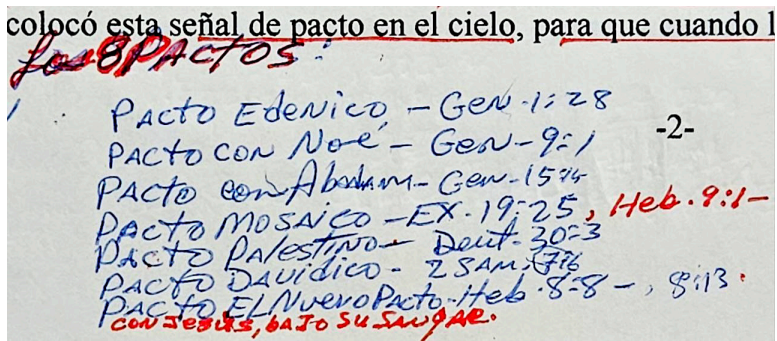 colocó esta señal de pacto en el cielo, para que cuando l
Los 8 PACTOS:
PACTO EdeNico - GeN-1:28
-2-
PACTO CON Noé - GeN-9:1
PACTO con Abraham - Gen-15:
PACTO MOSAiCO - EX-19:25, Heb. 9:1-
PACTO PAlestiNo - Deut-30:3
PACTO DAvidico - 2 SAM.
PACTO EL NUevo PActo-Heb-8:8-, 8:13.
CON Jesus, bAJO SU SANgRe.